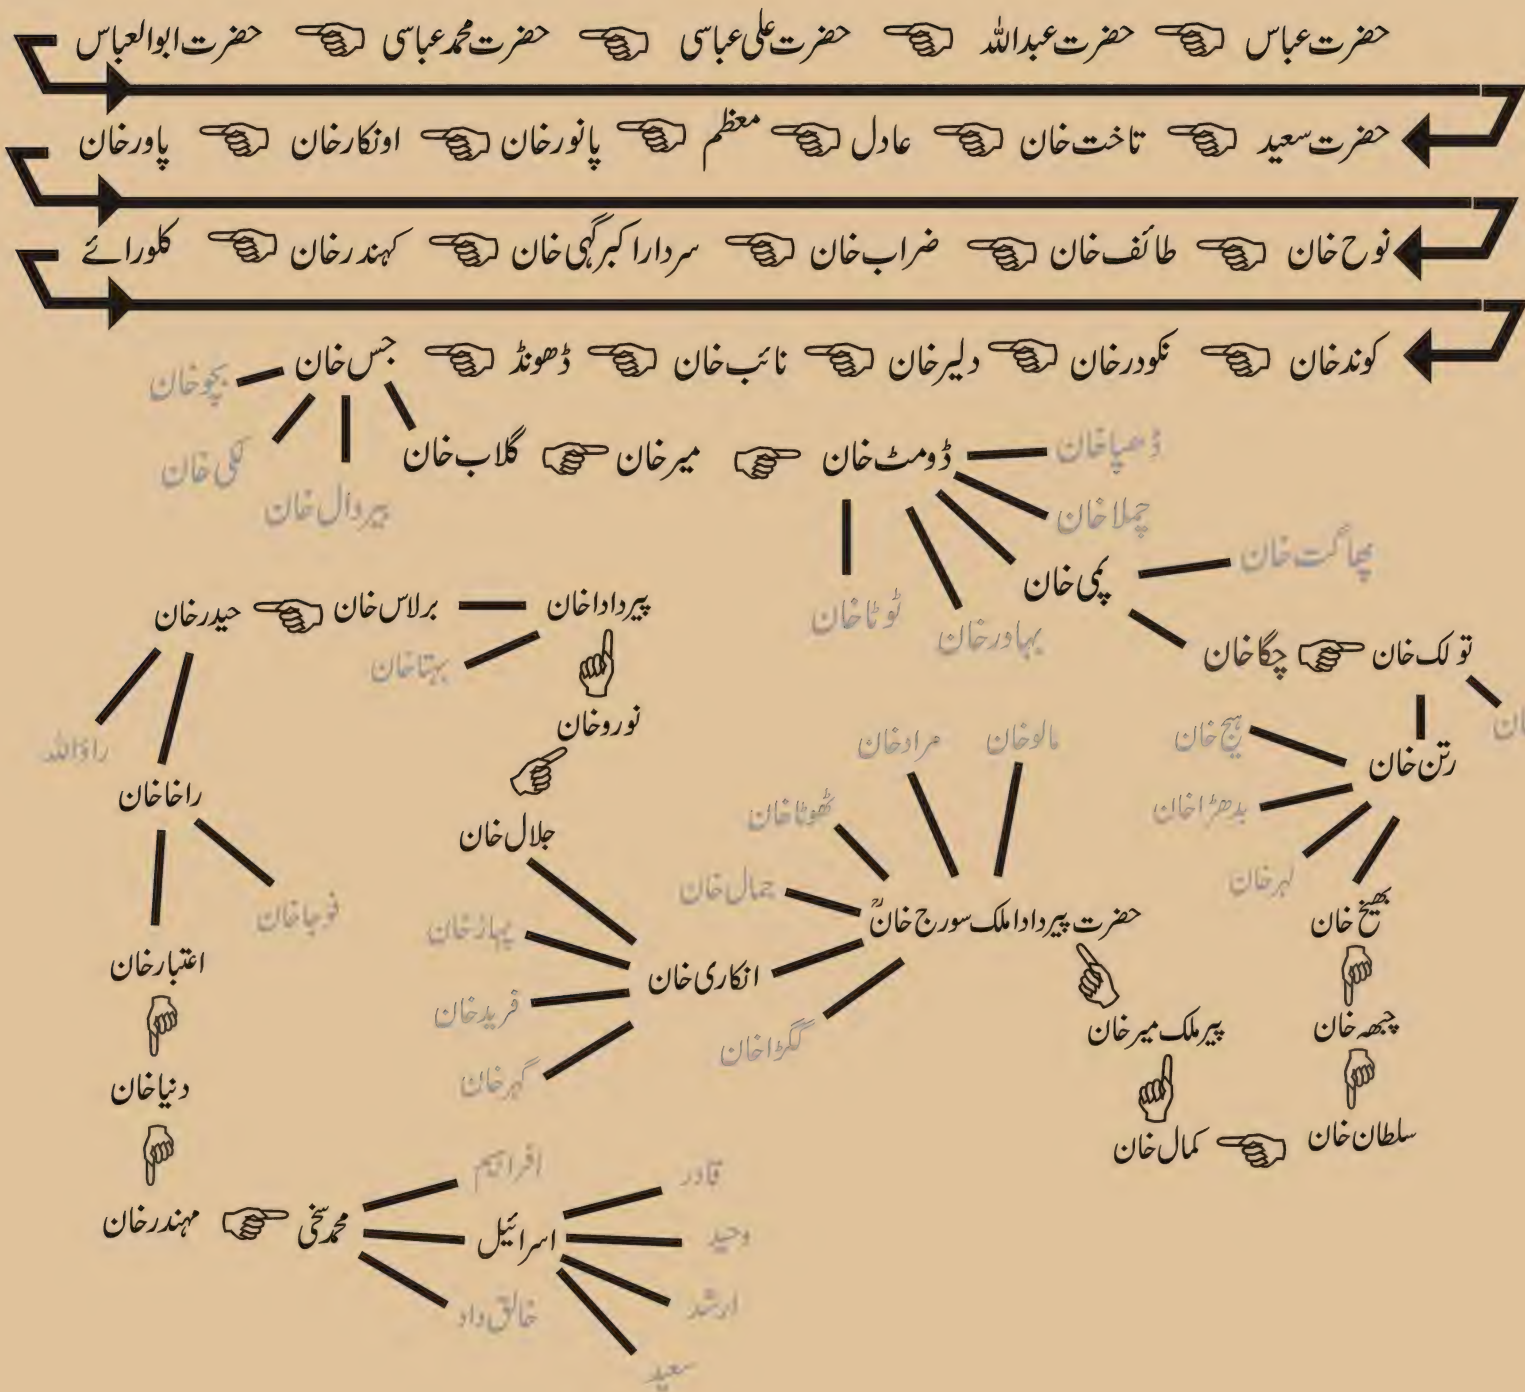 حضرت عباس حضرت عبداللہ حضرت علی عباسی حضرت محمد عباسی حضرت ابوالعباس
حضرت سعید تاخت خان عادل معظم پانور خان اونکار خان پاور خان
نوح خان طائف خان ضراب خان سردار اکبر گہی خان کہندر خان کلورائے
کوند خان نکودر خان دلیر خان نائب خان ڈھونڈ جس خان
بچو خان
لکی خان
بیردال خان
گلاب خان میر خان ڈومٹ خان
ڈھپا خان
چملا خان
پمی خان
بہادر خان
ٹوٹا خان
پھاگت خان
چگا خان تولک خان
رتن خان
ہیچ خان
بدھڑا خان
لہر خان
بھیخ خان
چبھہ خان
سلطان خان کمال خان
پیر ملک میر خان
حضرت پیر دادا ملک سورج خانؒ
مالو خان
مراد خان
ٹھوٹا خان
جمال خان
انکاری خان
گگڑا خان
پہاڑ خان
فرید خان
گہر خان
جلال خان
نورو خان
پیر دادا خان
بہتا خان
برلاس خان حیدر خان
راؤ اللہ
راخا خان
فوجا خان
اعتبار خان
دنیا خان
مہندر خان محمد سخی
افراہیم
اسرائیل
خالق داد
قادر
وحید
ارشد
سعید